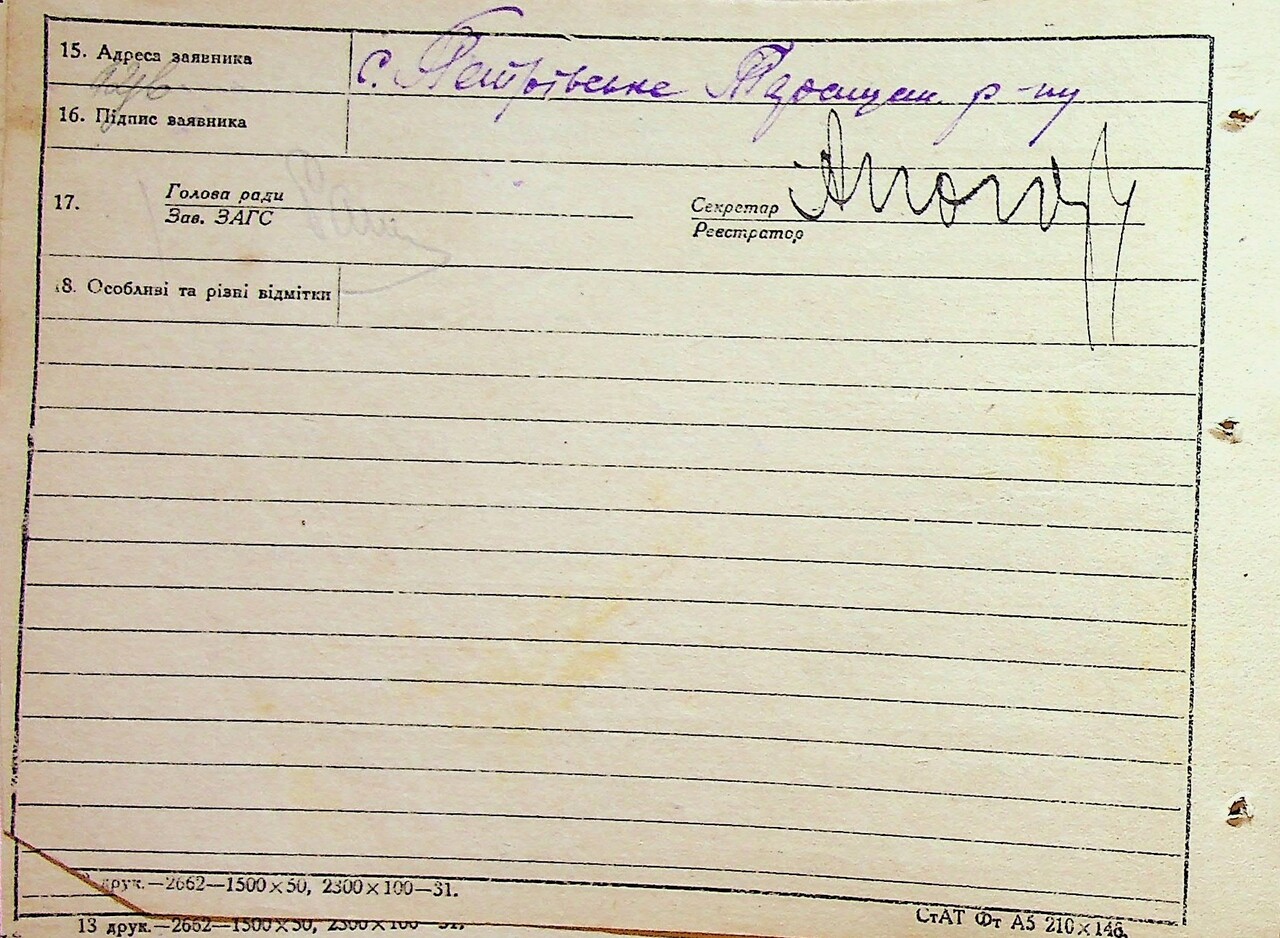 15. Адреса заявника с. Петрівське р-ну
16. Підпис заявника
17. Голова ради
Зав. ЗАГС
Секретар
Реєстратор
18. Особливі та різні відмітки
друк.—2662—1500×50, 2300×100—31.
13 друк.—2662—1500×50, 2300×100—31.
СтАТ Фт А5 210×148.